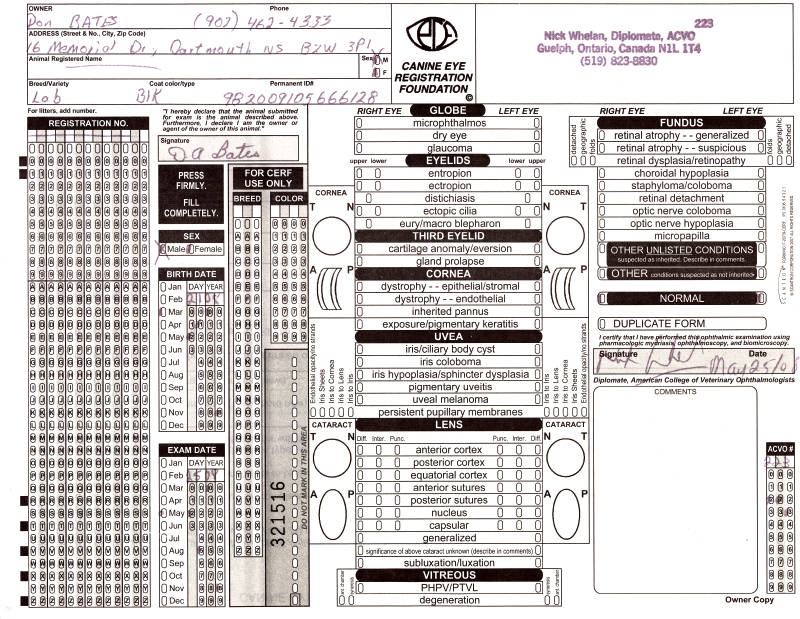 OWNER Phone
Don BATES (902) 462-4333
ADDRESS (Street & No., City, Zip Code)
16 Memorial Dr, Dartmouth NS B2W 3P1
Animal Registered Name Sex M
F
Breed/Variety Coat color/type Permanent ID#
Lab Blk 982009105666128
CANINE EYE
REGISTRATION
FOUNDATION ©
223
Nick Whelan, Diplomate, ACVO
Guelph, Ontario, Canada N1L 1T4
(519) 823-8830
For litters, add number.
REGISTRATION NO.
"I hereby declare that the animal submitted
for exam is the animal described above.
Furthermore, I declare I am the owner or
agent of the owner of this animal."
Signature
D A Bates
PRESS
FIRMLY.
FILL
COMPLETELY.
SEX
Male Female
BIRTH DATE
DAY YEAR
Jan
Feb
Mar
Apr
May
Jun
Jul
Aug
Sep
Oct
Nov
Dec
EXAM DATE
DAY YEAR
Jan
Feb
Mar
Apr
May
Jun
Jul
Aug
Sep
Oct
Nov
Dec
FOR CERF
USE ONLY
BREED COLOR
321516
DO NOT MARK IN THIS AREA
RIGHT EYE GLOBE LEFT EYE
microphthalmos
dry eye
glaucoma
EYELIDS
upper lower lower upper
entropion
ectropion
distichiasis
ectopic cilia
eury/macro blepharon
THIRD EYELID
cartilage anomaly/eversion
gland prolapse
CORNEA
dystrophy -- epithelial/stromal
dystrophy -- endothelial
inherited pannus
exposure/pigmentary keratitis
UVEA
iris/ciliary body cyst
iris coloboma
iris hypoplasia/sphincter dysplasia
pigmentary uveitis
uveal melanoma
persistent pupillary membranes
CORNEA
T N
A P
CORNEA
N T
P A
Endothelial opacity/no strands
Iris Sheets
Iris to Cornea
Iris to Lens
Iris to Iris
Iris to Iris
Iris to Lens
Iris to Cornea
Iris Sheets
Endothelial opacity/no strands
LENS
Diff. Inter. Punc. Punc. Inter. Diff.
anterior cortex
posterior cortex
equatorial cortex
anterior sutures
posterior sutures
nucleus
capsular
generalized
significance of above cataract unknown (describe in comments)
subluxation/luxation
CATARACT
T N
A P
CATARACT
N T
P A
VITREOUS
PHPV/PTVL
degeneration
ant. chamber
syneresis
syneresis
ant. chamber
RIGHT EYE LEFT EYE
FUNDUS
detached
geographic
folds
retinal atrophy -- generalized
retinal atrophy -- suspicious
retinal dysplasia/retinopathy
folds
geographic
detached
choroidal hypoplasia
staphyloma/coloboma
retinal detachment
optic nerve coloboma
optic nerve hypoplasia
micropapilla
OTHER UNLISTED CONDITIONS
suspected as inherited. Describe in comments.
OTHER conditions suspected as not inherited
NORMAL
DUPLICATE FORM
I certify that I have performed this ophthalmic examination using
pharmacologic mydriasis, ophthalmoscopy, and biomicroscopy.
Signature Date
May 25/09
Diplomate, American College of Veterinary Ophthalmologists
COMMENTS
ACVO #
223
Owner Copy